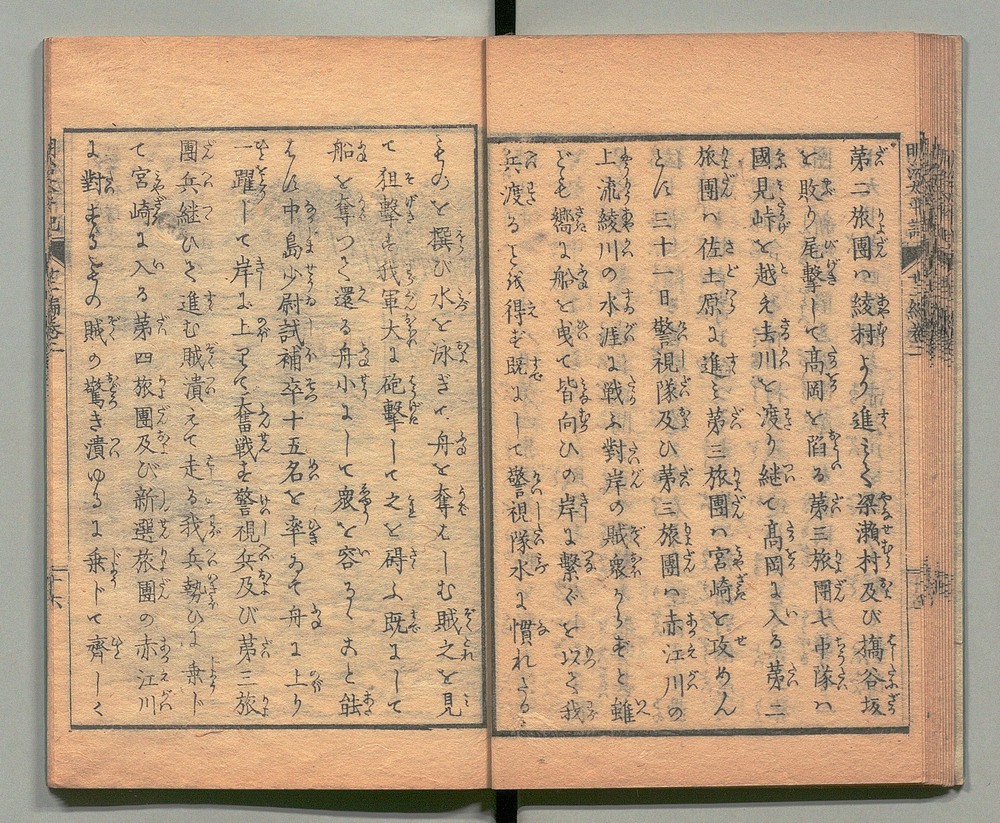 第二旅團ハ綾村より進ミて梁瀬村及び搦谷坂
を敗り尾撃して髙岡を陷る第三旅團七中隊ハ
國見峠を越え去川を渡り継て髙岡に入る第二
旅團ハ佐土原に進ミ第三旅團ハ宮崎を攻めん
とに三十一日警視隊及ひ第三旅團ハ赤江川の
上流綾川の水涯に戰ふ對岸の賊衆からずと雖
ども嚮に船を曳て皆向ひの岸に繋ぐを以て我
兵渡ることを得ず既にして警視隊水に慣れたる
ものを撰び水を泳ぎて舟を奪はしむ賊之を見
て狙撃す我軍大に砲撃して之を碍ふ既にして
船を奪つて還る舟小にして衆を容るゝこと能
はに中島少尉試補卒十五名を率ゐて舟に上り
一躍して岸に上りて奮戰す警視兵及び第三旅
團兵継ひて進む賊潰えて走る我兵勢ひに乗じ
て宮崎に入る第四旅團及び新選旅團の赤江川
に對するもの賊の驚き潰ゆるに乗じて齊しく